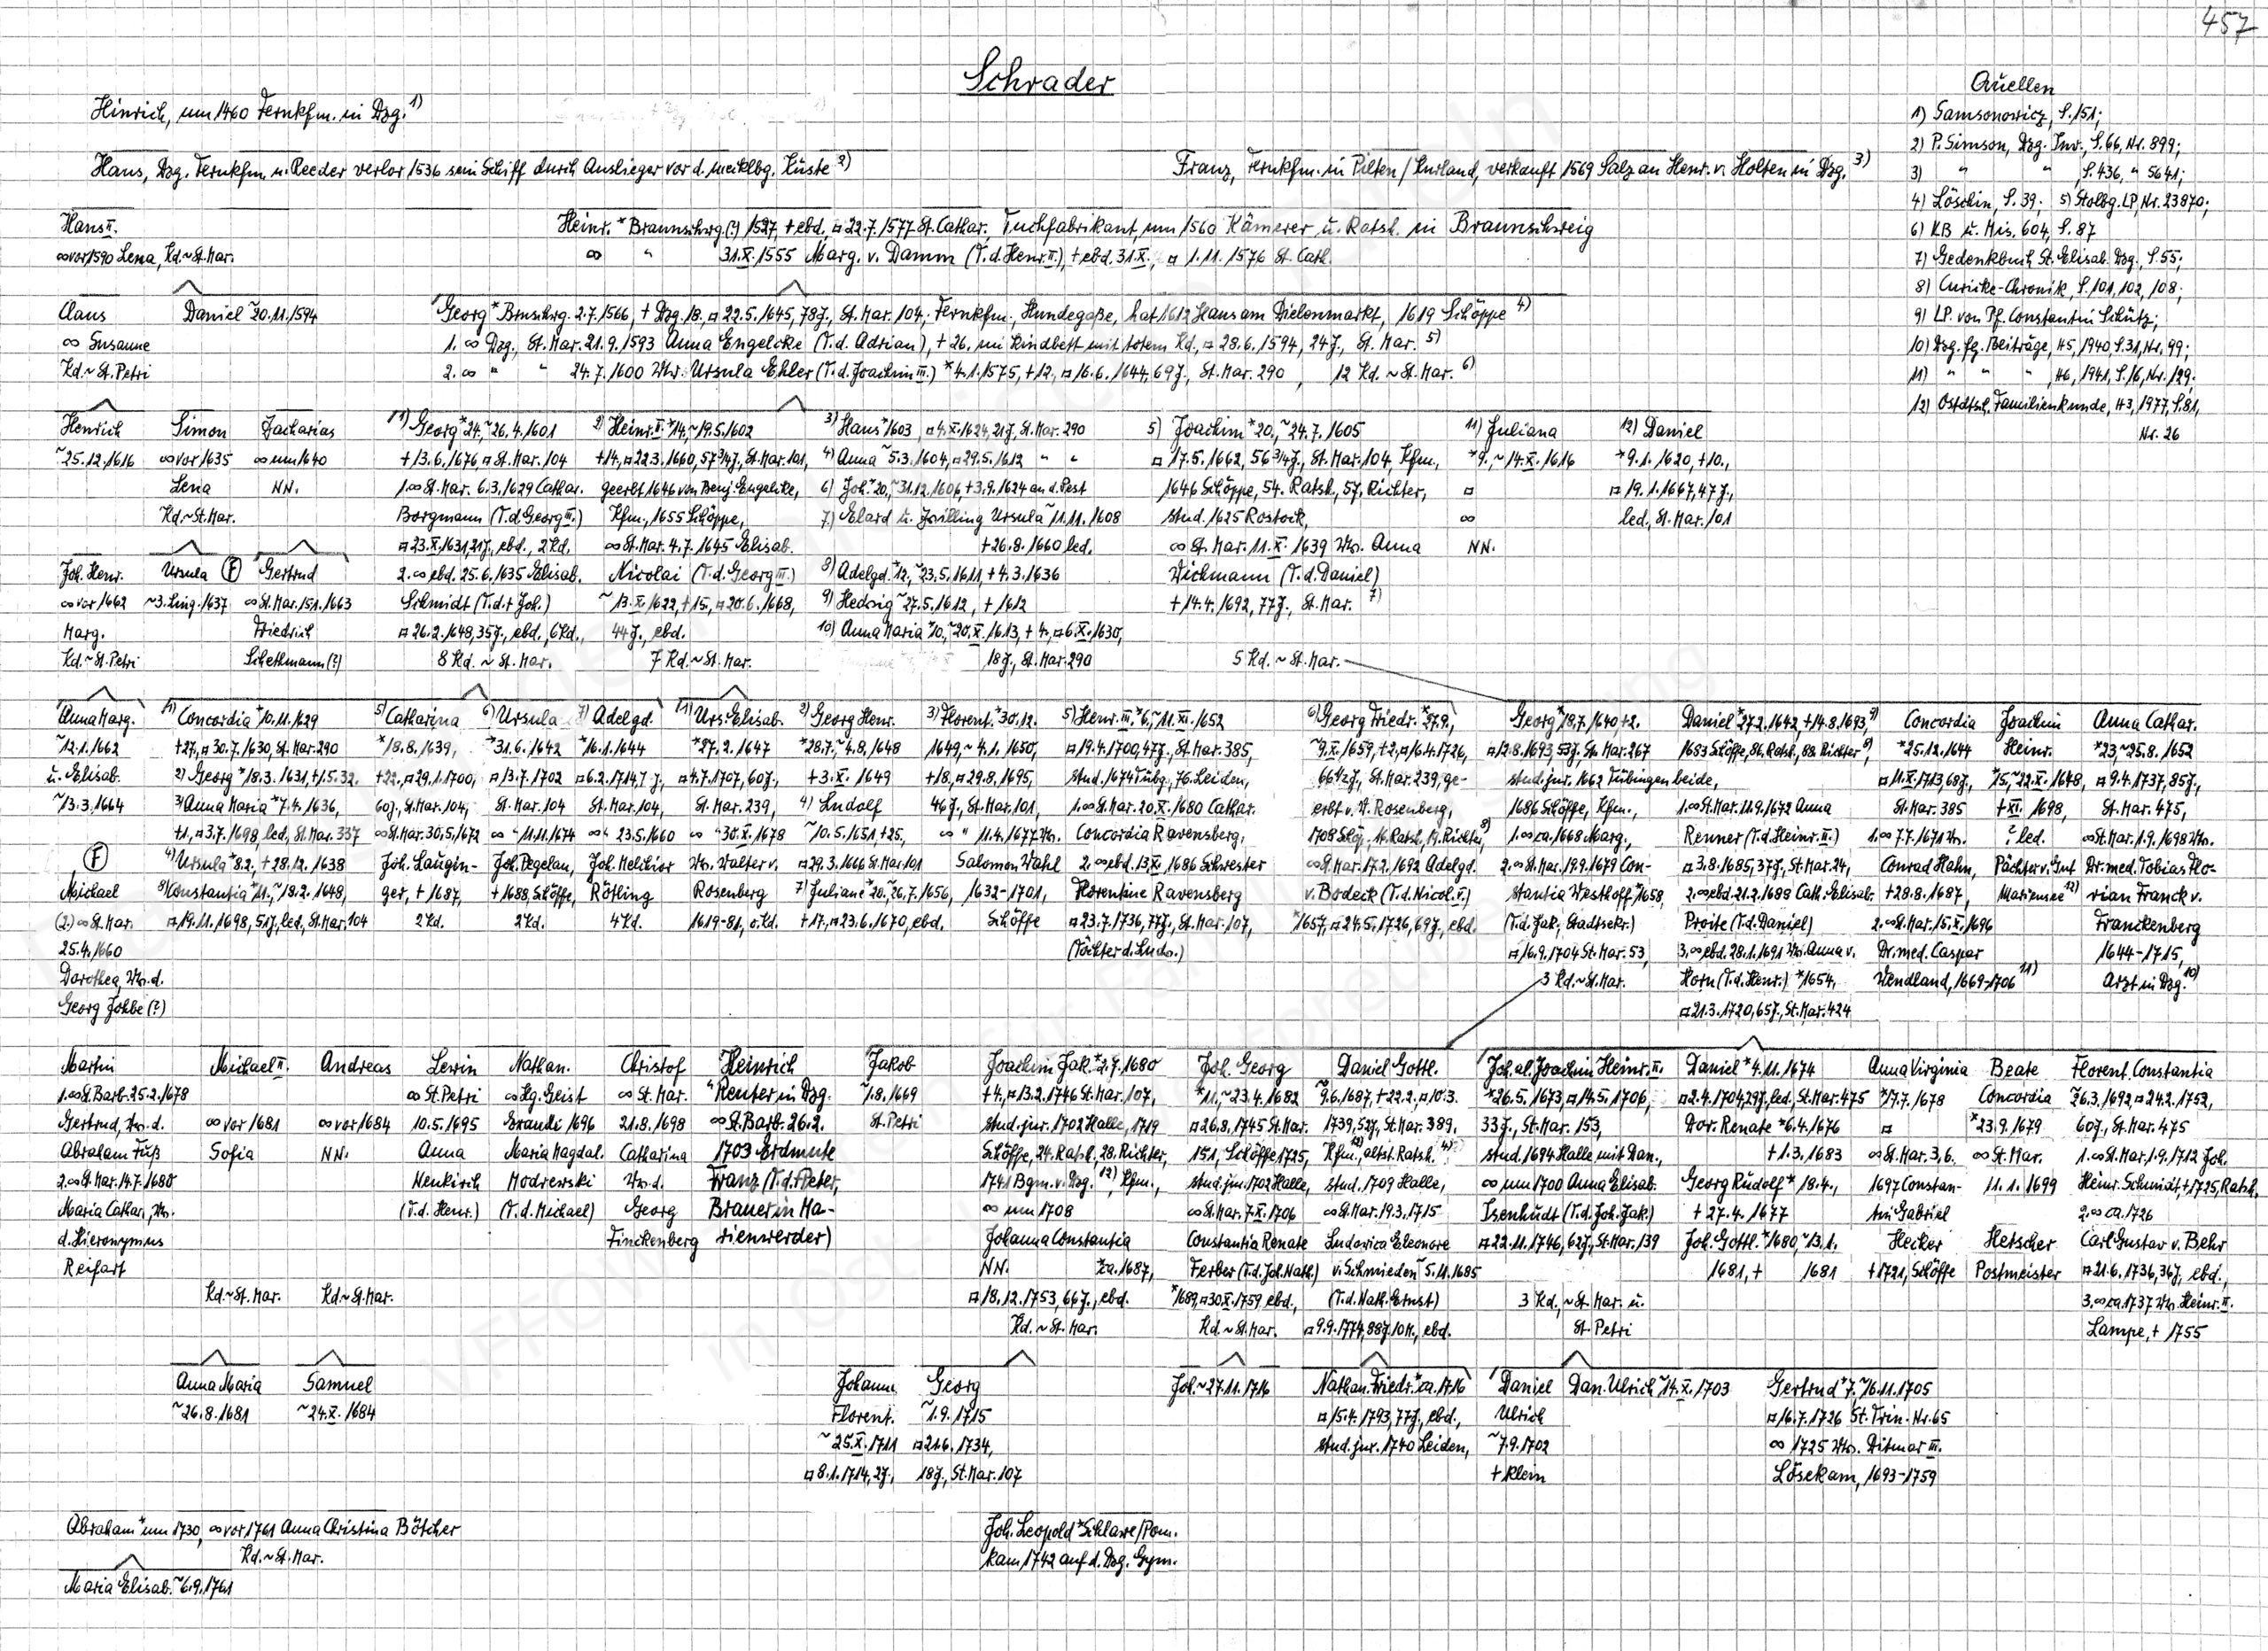 457
Schrader
Quellen
1) Samsonowicz, S.151;
2) P. Simson, Dzg. Inv., S.66, Nr. 899;
3) " " S.436, " 5641;
4) Löschin, S. 39; 5) Stolbg. LP, Nr. 23870;
6) KB u. Mis. 604, S. 87
7) Gedenkbuch St. Elisab. Dzg., S.55;
8) Curicke-Chronik, S.101, 102, 108;
9) LP. von Pf. Constantin Schütz;
10) Dzg. fg. Beiträge, H5, 1940, S.31, Nr. 99;
11) " " " , H6, 1941, S.16, Nr. 129;
12) Ostdtsch. Familienkunde, H3, 1977, S.81,
Nr. 26
Hinrich, um 1460 Fernkfm. in Dzg. 1)
Hans, Dzg. Fernkfm. u. Reeder verlor 1536 sein Schiff durch Auslieger vor d. mecklbg. Küste 2)
Franz, Fernkfm. in Pilten/Kurland, verkauft 1569 Salz an Henr. v. Holten in Dzg. 3)
Hans II.
∞ vor 1590 Lena, Kd. ~ St. Mar.
Heinr. * Braunschwg. (?) 1527, + ebd., ¤ 22.7.1577 St. Cathar. Tuchfabrikant, um 1560 Kämerer u. Ratsh. in Braunschweig
∞ " 31.X.1555 Marg. v. Damm (T.d. Henr. II.), + ebd. 31.X., ¤ 1.11.1576 St. Cath.
Claus
∞ Susanne
Kd. ~ St. Petri
Daniel ~ 20.11.1594
Georg * Brnschwg. 2.7.1566, + Dzg. 18., ¤ 22.5.1645, 78J., St. Mar. 104, Fernkfm., Hundegaße, hat 1612 Haus am Dielenmarkt, 1619 Schöppe 4)
1. ∞ Dzg., St. Mar. 21.9.1593 Anna Engelcke (T.d. Adrian), + 26., im Kindbett mit totem Kd., ¤ 28.6.1594, 24J., St. Mar. 5)
2. ∞ " " 24.7.1600 Ww. Ursula Ehler (T.d. Joachim III.) * 4.1.1575, + 12., ¤ 16.6.1644, 69J., St. Mar. 290, 12 Kd. ~ St. Mar. 6)
Henrich
~ 25.12.1616
Simon
∞ vor 1635
Lena
Kd. ~ St. Mar.
Zacharias
∞ um 1640
NN.
1) Georg * 24., ~ 26.4.1601
+ 13.6.1676 ¤ St. Mar. 104
1. ∞ St. Mar. 6.3.1629 Cathar.
Borgmann (T.d. Georg III.)
¤ 23.X.1631, 21J., ebd., 2 Kd.
2. ∞ ebd. 25.6.1635 Elisab.
Schmidt (T.d. + Joh.)
¤ 26.2.1648, 35J., ebd., 6 Kd.,
8 Kd. ~ St. Mar.
2) Heinr. II. * 14., ~ 19.5.1602
+ 14., ¤ 22.3.1660, 57 3/4 J., St. Mar. 101,
geerbt 1646 von Benj. Engelcke,
Kfm., 1655 Schöppe,
∞ St. Mar. 4.7.1645 Elisab.
Nicolai (T.d. Georg III.)
~ 13.X.1622, + 15., ¤ 20.6.1668,
44J., ebd.
7 Kd. ~ St. Mar.
3) Hans * 1603, ¤ 4.X.1624, 21J., St. Mar. 290
4) Anna ~ 5.3.1604, ¤ 29.5.1612 " "
6) Joh. * 20., ~ 31.12.1606, + 3.9.1624 an d. Pest
7) Elard u. Zwilling Ursula ~ 11.11.1608
+ 26.8.1660 led.
8) Adelgd. * 12., ~ 23.5.1611, + 4.3.1636
9) Hedwig ~ 27.5.1612, + 1612
10) Anna Maria * 10., ~ 20.X.1613, + 4., ¤ 6.X.1630,
18J., St. Mar. 290
5) Joachim * 20., ~ 24.7.1605
¤ 17.5.1662, 56 3/4 J., St. Mar. 104, Kfm.,
1646 Schöppe, 54. Ratsh., 57. Richter,
stud. 1625 Rostock,
∞ St. Mar. 11.X.1639 Ww. Anna
Wichmann (T.d. Daniel)
+ 14.4.1692, 77J., St. Mar. 7)
5 Kd. ~ St. Mar.
11) Juliana
* 9., ~ 14.X.1616
¤
∞
NN.
12) Daniel
* 9.1.1620, + 10.,
¤ 19.1.1667, 47J.,
led., St. Mar. 101
Joh. Henr.
∞ vor 1662
Marg.
Kd. ~ St. Petri
Ursula
~ 3. Ling. 1637
F
Gertrud
∞ St. Mar. 15.1.1663
Friedrich
Schethmann (?)
Anna Marg.
~ 12.1.1662
u. Elisab.
~ 13.3.1664
F
Michael
(2.) ∞ St. Mar.
25.4.1660
Dorothea, Ww. d.
Georg Johbe (?)
1) Concordia * 10.11.1629
+ 27., ¤ 30.7.1630, St. Mar. 290
2) Georg * 18.3.1631, + 15.32.
3) Anna Maria * 7.4.1636,
+ 1., ¤ 3.7.1698, led., St. Mar. 337
4) Ursula * 8.2., + 28.12.1638
8) Constantia * 11., ~ 18.2.1648,
¤ 19.11.1698, 51J., led., St. Mar. 104
5) Catharina
* 18.8.1639,
+ 22., ¤ 29.1.1700,
60J., St. Mar. 104,
∞ St. Mar. 30.5.1672
Joh. Laugin-
ger, + 1687,
2 Kd.
6) Ursula
* 31.6.1642
¤ 13.7.1702
St. Mar. 104
∞ " 11.11.1674
Joh. Pegelau,
+ 1688, Schöffe,
2 Kd.
7) Adelgd.
* 16.1.1644
¤ 6.2.1714 7 J.,
St. Mar. 104,
∞ " 23.5.1660
Joh. Melchior
Rötling
4 Kd.
1) Urs. Elisab.
* 27.2.1647
¤ 4.7.1707, 60J.,
St. Mar. 239,
∞ " 30.X.1678
Ww. Walter v.
Rosenberg
1619-81, o. Kd.
2) Georg Henr.
* 28.7., ~ 4.8.1648
+ 3.X.1649
4) Ludolf
~ 10.5.1651, + 25.,
¤ 29.3.1666 St. Mar. 101
7) Juliane * 20., ~ 26.7.1656,
+ 17., ¤ 23.6.1670, ebd.
3) Florent. * 30.12.
1649, ~ 4.1.1650,
+ 18., ¤ 29.8.1695,
46J., St. Mar. 101,
∞ " 11.4.1677 Ww.
Salomon Wahl
1632-1701,
Schöffe
5) Henr. III. * 6., ~ 11.XI.1652
¤ 19.4.1700, 47J., St. Mar. 385,
stud. 1674 Tübg., 76. Leiden,
1. ∞ St. Mar. 20.X.1680 Cathar.
Concordia Ravensberg,
2. ∞ ebd. 13.XI.1686 Schwester
Florentine Ravensberg
¤ 23.7.1736, 77J., St. Mar. 107,
(Töchter d. Ludw.)
6) Georg Friedr. * 27.9.,
~ 9.X.1659, + 2., ¤ 16.4.1726,
66 1/2 J., St. Mar. 239, ge-
erbt v. W. Rosenberg,
1708 Schöp., 11. Ratsh., 17. Richter, 8)
∞ St. Mar. 17.2.1692 Adelgd.
v. Bodeck (T.d. Nicol. V.)
* 1657, ¤ 24.5.1726, 69J., ebd.
Georg * 18.7.1640, + 2.
¤ 12.8.1693, 53J., St. Mar. 267
stud. jur. 1662 Tübingen beide,
1686 Schöffe, Kfm.,
1. ∞ ca. 1668 Marg.,
2. ∞ St. Mar. 19.9.1679 Con-
stantia Westhoff * 1658,
(T.d. Jak., Stadtsekr.)
¤ 16.9.1704 St. Mar. 53,
3 Kd. ~ St. Mar.
Daniel * 27.2.1642, + 14.8.1693, 9)
1683 Schöffe, 86. Ratsh., 88. Richter 8)
1. ∞ St. Mar. 11.9.1672 Anna
Renner (T.d. Heinr. II.)
¤ 3.8.1685, 37J., St. Mar. 24,
2. ∞ ebd. 21.2.1688 Cath. Elisab.
Proite (T.d. Daniel)
3. ∞ ebd. 28.1.1691 Ww. Anna v.
Horn (T.d. Henr.) * 1654,
¤ 21.3.1720, 65J., St. Mar. 424
Concordia
* 25.12.1644
¤ 11.X.1713, 68J.,
St. Mar. 385
1. ∞ 7.7.1671 Ww.
Conrad Hahn,
+ 28.8.1687,
2. ∞ St. Mar. 15.X.1696
Dr. med. Caspar
Wendland, 1669-1706 11)
Joachim
Heinr.
* 15., ~ 22.X.1648,
+ XI. 1698,
? led.
Pächter v. Gut
Mariensee 12)
Anna Cathar.
* 23., ~ 25.8.1652
¤ 9.4.1737, 85J.,
St. Mar. 475,
∞ St. Mar. 1.9.1698 Ww.
Dr. med. Tobias Flo-
rian Franck v.
Franckenberg
1644-1715,
Arzt in Dzg. 10)
Martin
1. ∞ St. Barb. 25.2.1678
Gertrud, Ww. d.
Abraham Füß
2. ∞ St. Mar. 14.7.1680
Maria Cathar., Ww.
d. Hieronymus
Reifart
Michael II.
∞ vor 1681
Sofia
Kd. ~ St. Mar.
Andreas
∞ vor 1684
NN.
Kd. ~ St. Mar.
Lewin
∞ St. Petri
10.5.1695
Anna
Neukirch
(T.d. Henr.)
Nathan.
∞ Hg. Geist
Graudz 1696
Maria Magdal.
Modrewski
(T.d. Michael)
Christof
∞ St. Mar.
21.8.1698
Catharina
Ww. d.
Georg
Finckenberg
Heinrich
Reuter in Dzg.
∞ St. Barb. 26.2.
1703 Erdmute
Franz (T.d. Peter,
Brauer in Ma-
rienwerder)
Jakob
~ 1.8.1669
St. Petri
Joachim Jak. * 2.7.1680
+ 4., ¤ 13.2.1746 St. Mar. 107,
stud. jur. 1702 Halle, 1719
Schöffe, 24. Ratsh., 28. Richter,
1741 Bgm. v. Dzg. 12), Kfm.,
∞ um 1708
Johanna Constantia
NN. * ca. 1687,
¤ 18.12.1753, 66J., ebd.
Kd. ~ St. Mar.
Joh. Georg
* 11., ~ 23.4.1682
¤ 26.8.1745 St. Mar.
151, Schöffe 1725,
stud. jur. 1702 Halle,
∞ St. Mar. 7.X.1706
Constantia Renate
Ferber (T.d. Joh. Nath.)
* 1689, ¤ 30.X.1759, ebd.,
Kd. ~ St. Mar.
Daniel Gottl.
~ 9.6.1687, + 22.2., ¤ 10.3.
1739, 52J., St. Mar. 389,
Kfm., altst. Ratsh. 4)
stud. 1709 Halle,
∞ St. Mar. 19.3.1715
Ludovica Eleonore
v. Schmieden ~ 5.11.1685
(T.d. Nath. Ernst)
¤ 9.9.1774, 88J. 10 M., ebd.
Joh. al. Joachim Heinr. II.
* 26.5.1673, ¤ 14.5.1706,
33J., St. Mar. 153,
stud. 1694 Halle mit Dan.,
∞ um 1700 Anna Elisab.
Isenhudt (T.d. Joh. Jak.)
¤ 22.11.1746, 62J., St. Mar. 139
3 Kd., ~ St. Mar. u.
St. Petri
Daniel * 4.11.1674
¤ 2.4.1704, 29J., led., St. Mar. 475
Dor. Renate * 6.4.1676
+ 1.3.1683
Georg Rudolf * 18.4.,
+ 27.4.1677
Joh. Gottl. * 1680, ~ 13.1.
1681, + 1681
Anna Virginia
* 17.7.1678
¤
∞ St. Mar. 3.6.
1697 Constan-
tin Gabriel
Hecker
+ 1721, Schöffe
Beate
Concordia
* 23.9.1679
∞ St. Mar.
11.1.1699
Hetscher
Postmeister
Florent. Constantia
~ 26.3.1692, ¤ 24.2.1752,
60J., St. Mar. 475
1. ∞ St. Mar. 1.9.1712 Joh.
Heinr. Schmidt, + 1725, Ratsh.
2. ∞ ca. 1726
Carl Gustav v. Behr
¤ 21.6.1736, 36J., ebd.,
3. ∞ ca. 1737 Ww. Heinr. II.
Lampe, + 1755
Anna Maria
~ 26.8.1681
Samuel
~ 24.X.1684
Johann
Florent.
~ 25.X.1711
¤ 8.1.1714, 2J.,
Georg
~ 1.9.1715
¤ 21.6.1734,
18J., St. Mar. 107
Joh. ~ 27.11.1716
Nathan. Friedr. * ca. 1716
¤ 15.4.1793, 77J., ebd.,
stud. jur. 1740 Leiden,
Daniel
Ulrich
~ 7.9.1702
+ klein
Dan. Ulrich ~ 14.X.1703
Gertrud * 7., ~ 16.11.1705
¤ 16.7.1726 St. Trin. Nr. 65
∞ 1725 Ww. Ditmar III.
Lösekam, 1693-1759
Abraham * um 1730, ∞ vor 1761 Anna Christina Bötcher
Kd. ~ St. Mar.
Maria Elisab. ~ 6.9.1761
Joh. Leopold * Schlawe/Pom.
kam 1742 auf d. Dzg. Gym.